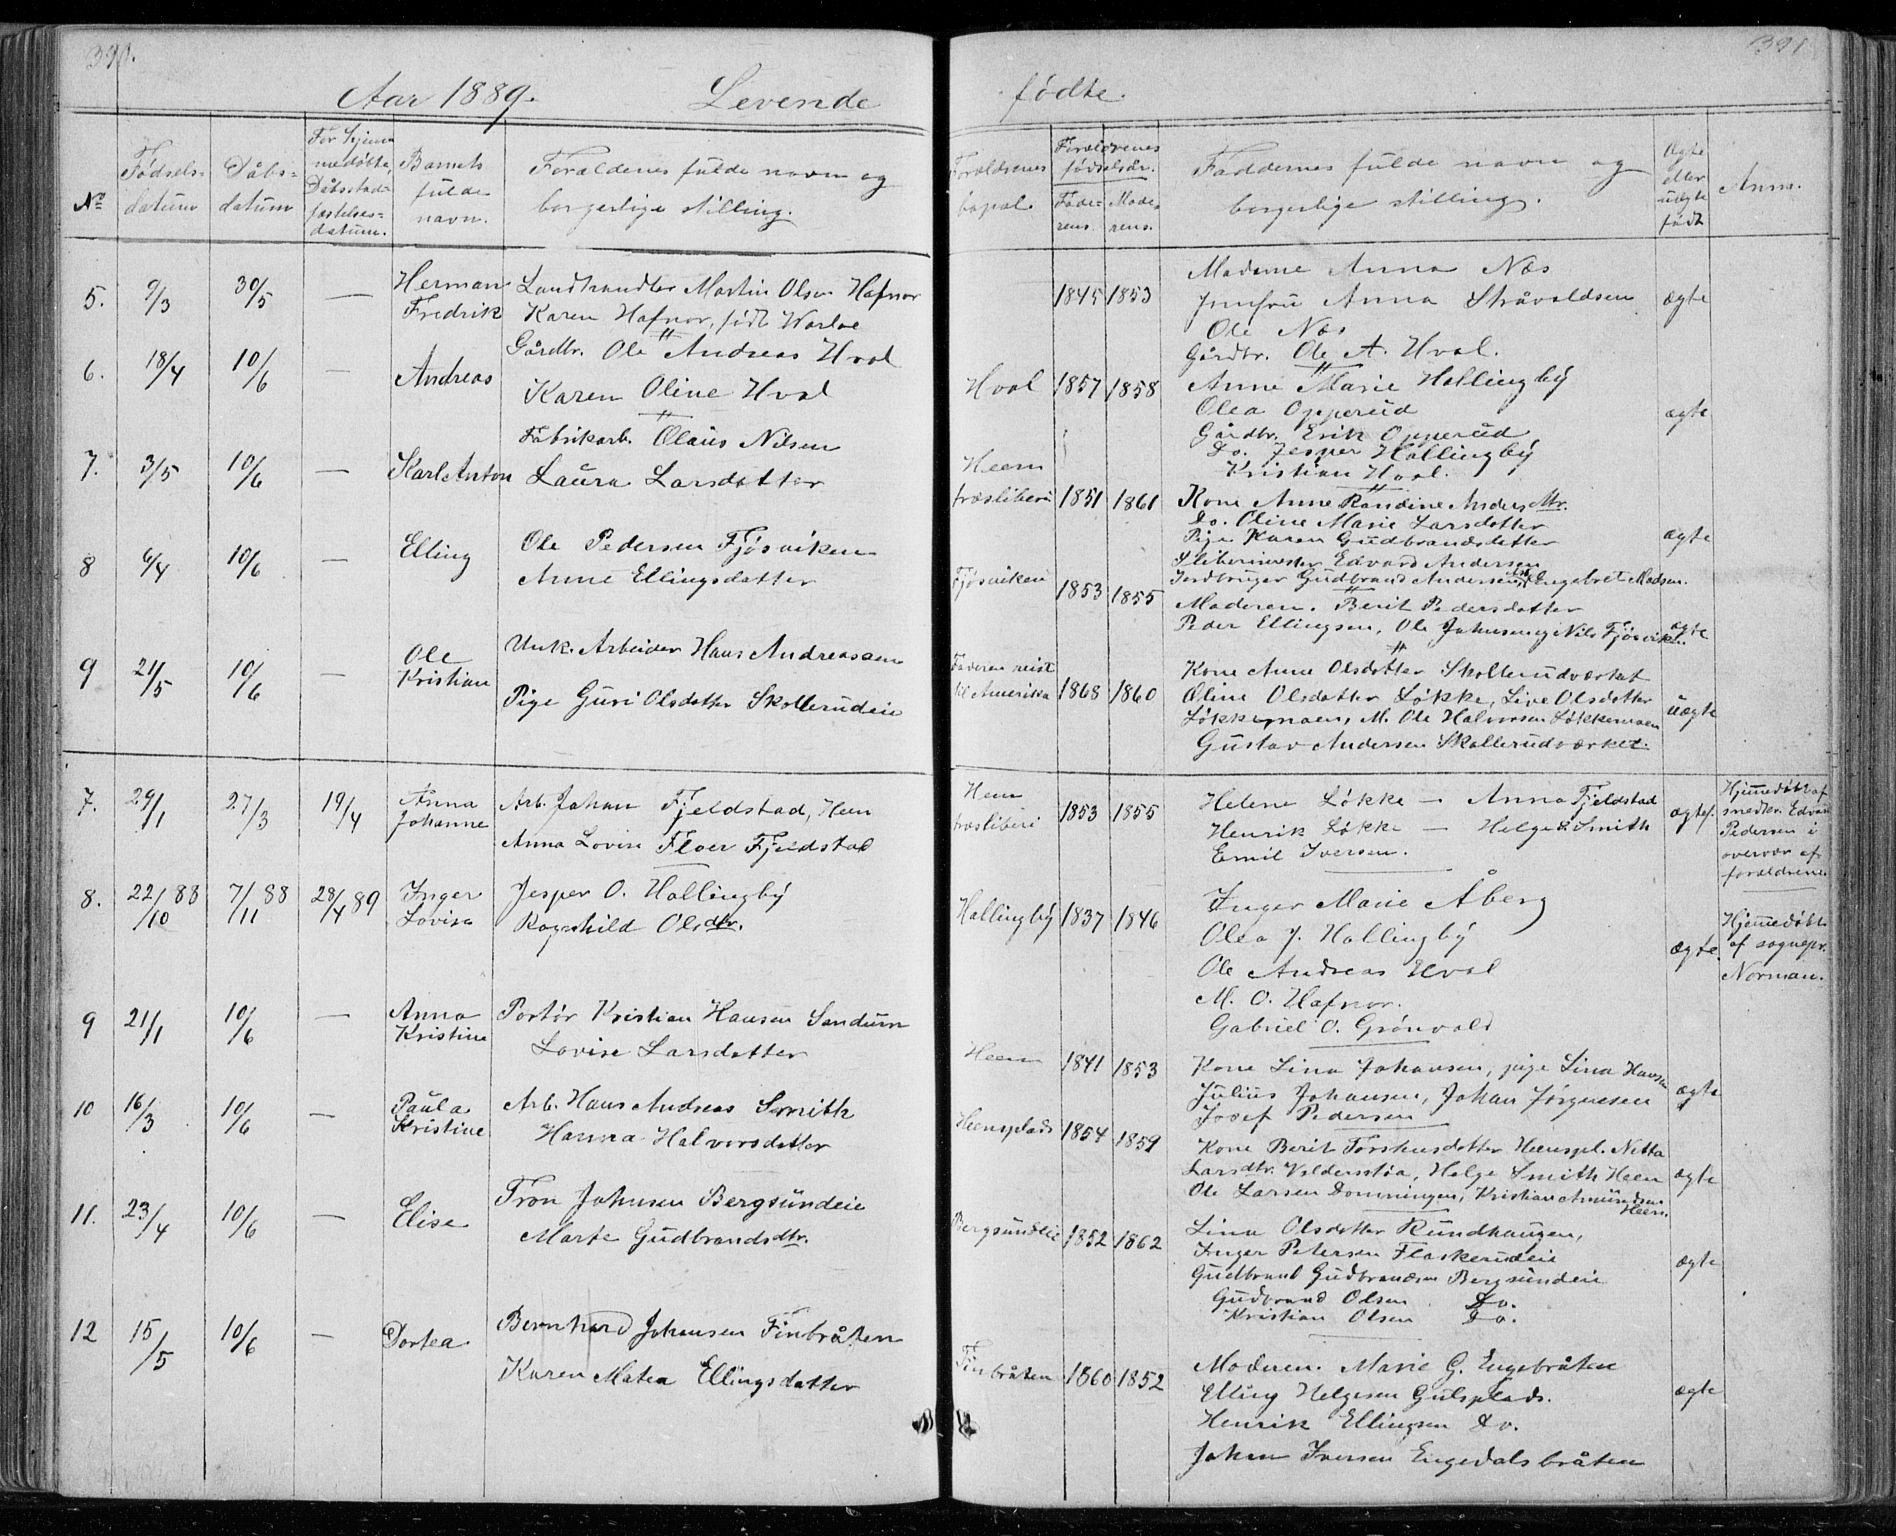 390.
Aar 1889. Levende
No
Fødsels-
datum
Dåbs-
datum
For hjem-
medøbte,
Dåbsstad-
fæstelses-
datum.
Barnets
fulde
navn.
Forældrenes fulde navn og
borgerlige stilling.
5. 9/3 30/5 — Herman
Fredrik
Landhandler Martin Olsen Hafnor
Karen Hafnor, født Warloe
6. 18/4 10/6 — Andreas
Gårdbr. Ole Andreas Hval
Karen Oline Hval
7. 3/5 10/6 — Karl Anton
Fabrikarb. Olaus Nilsen
Laura Larsdatter
8 6/4 10/6 — Elling
Ole Pedersen Fjøsviken
Anne Ellingsdatter
9 21/5 10/6 — Ole
Kristian
Unk. Arbeider Hans Andreassen
Pige Guri Olsdatter Skollerudeie
7. 29/1 27/3 19/4 Anna
Johanne
Arb. Johan Fjeldstad, Heen
Anna Lovise Floer Fjeldstad
8. 22/10 88 7/11 88 28/4 89 Inger
Lovise
Jesper O. Hallingby
Ragnhild Olsdtr.
9 21/1 10/6 — Anna
Kristine
Portør Kristian Hansen Sandum
Lovise Larsdatter
10 16/3 10/6 — Paula
Kristine
Arb. Hans Andreas Smith
Hanna Halvorsdatter
11. 23/4 10/6 — Elise
Tron Johnsen Bergsundeie
Marte Gudbrandsdtr.
12 15/5 10/6 — Dortea
Bernhard Johansen Finbråten
Karen Matea Ellingsdatter
391
fødte.
Forældrenes
bopæl.
Forældrenes
fødselsår.
Fade-
rens.
Mode-
rens.
Faddernes fulde navn og
borgerlige stilling.
Ægte
eller
uægte
født
Anm.
1845 1853
Madame Anna Næs
Jomfru Anna Stråvaldsen
Ole Næs
ægte
Hval 1857 1858
Gårdbr. Ole A. Hval.
Anne Marie Hallingby
Olea Opperud
Gårdbr. Erik Opperud
Do. Jesper Hallingby
Kristian Hval.
ægte
Heens
træsliberi 1851 1861
Kone Anne Randine Andersdtr.
Do. Oline Marie Larsdatter
Pige Karen Gudbrandsdatter
Slibermester Edvard Andersen
Jordbruger Gudbrand Andersen, Engebret Madsen.
ægte
Fjøsviken 1853 1855
Moderen. Berit Pedersdatter
Peder Ellingsen, Ole Johnsen og Nils Fjøsviken.
ægte
Faderen reist
til Amerika 1868 1860
Kone Anne Olsdatter Skollerudværket
Oline Olsdatter Løkke, Live Olsdatter
Løkkemoen, M. Ole Halvorsen Løkkemoen
Gustav Andersen Skollerudværket.
uægte
Heen
træsliberi 1853 1855
Helene Løkke — Anna Fjeldstad
Henrik Løkke — Helge S. Smith
Emil Iversen.
ægte.
Hjemmedøbt af
smedm. Edvard
Pedersen i
overvær af
forældrene
Hallingby 1837 1846
Inger Marie Åberg
Olea J. Hallingby
Ole Andreas Hval
M. O. Hafnor.
Gabriel O. Grönvold
ægte.
Hjemmedøbt
af sognepr.
Norman.
Heen 1841 1853
Kone Lina Johansen, pige Lina Hansen
Julius Johansen, Johan Jørgensen
Josef Pedersen
ægte
Heensplads 1854 1859
Kone Berit Torshusdatter Heenspl. Netta
Larsdtr. Veldersstøa, Helge Smith Heen
Ole Larsen Domningen, Kristian Amundsen
Heen.
ægte
Bergsundeie 1852 1862
Lina Olsdatter Rundhaugen,
Inger Petersen Flaskerudeie
Gudbrand Gudbrandsen Bergsundeie
Gudbrand Olsen Do.
Kristian Olsen Do.
ægte
Finbråten 1860 1852
Moderen. Marie G. Engebråten
Elling Helgesen Gulsplads.
Henrik Ellingsen Do.
Johan Iversen Engedalsbråten
ægte